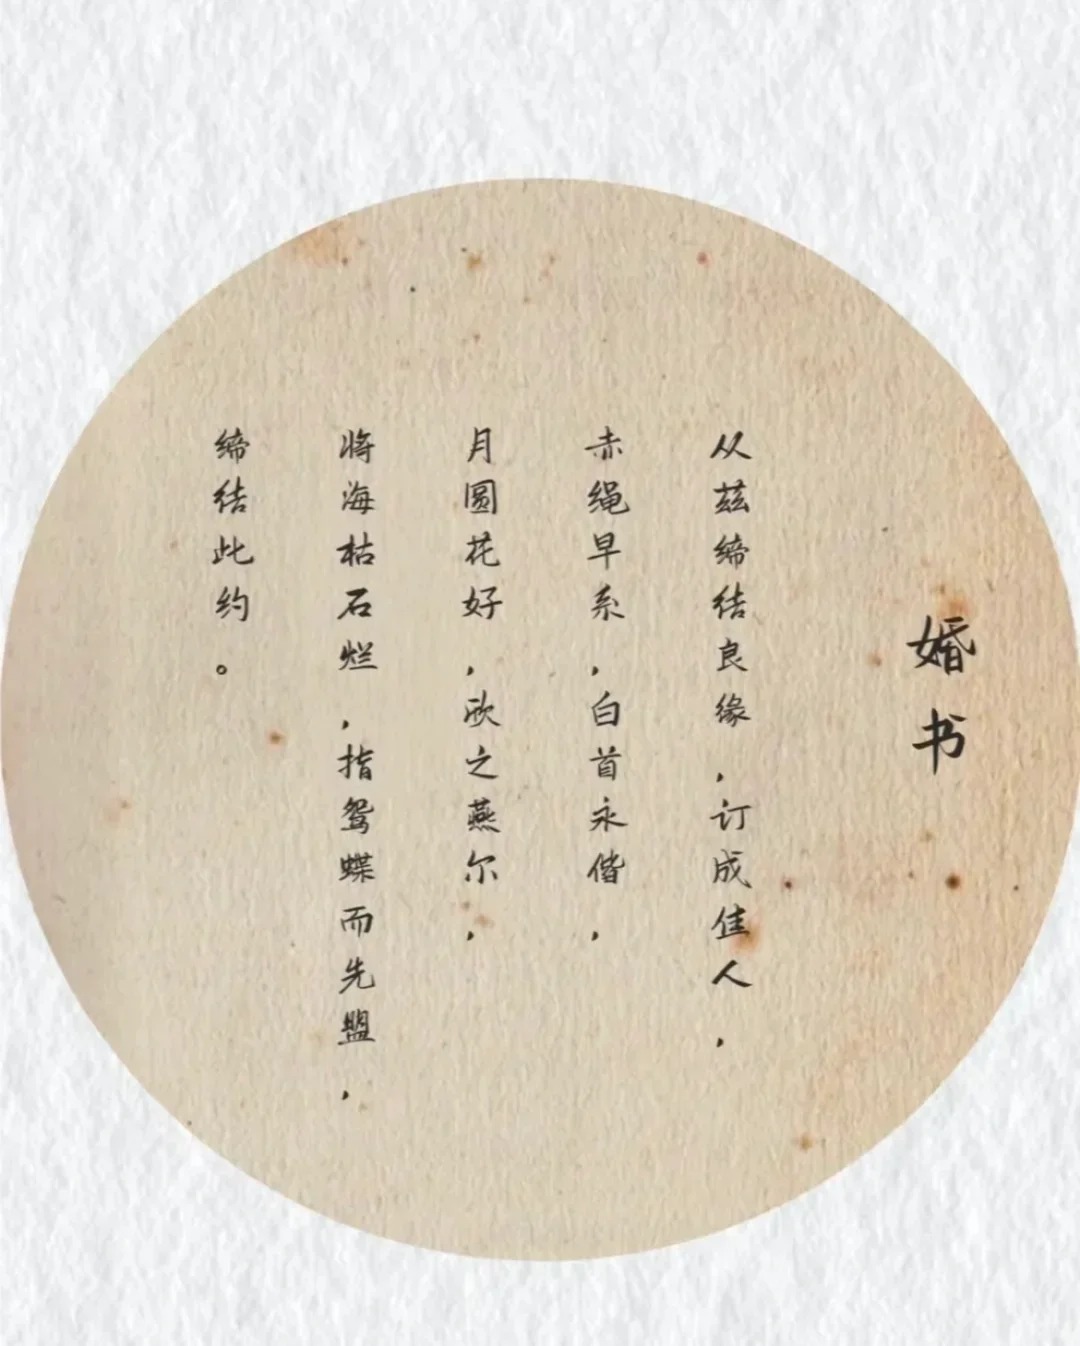 婚书
从兹缔结良缘,订成佳人,
赤绳早系,白首永偕,
月圆花好,欣之燕尔,
将海枯石烂,指鸳蝶而先盟,
缔结此约。